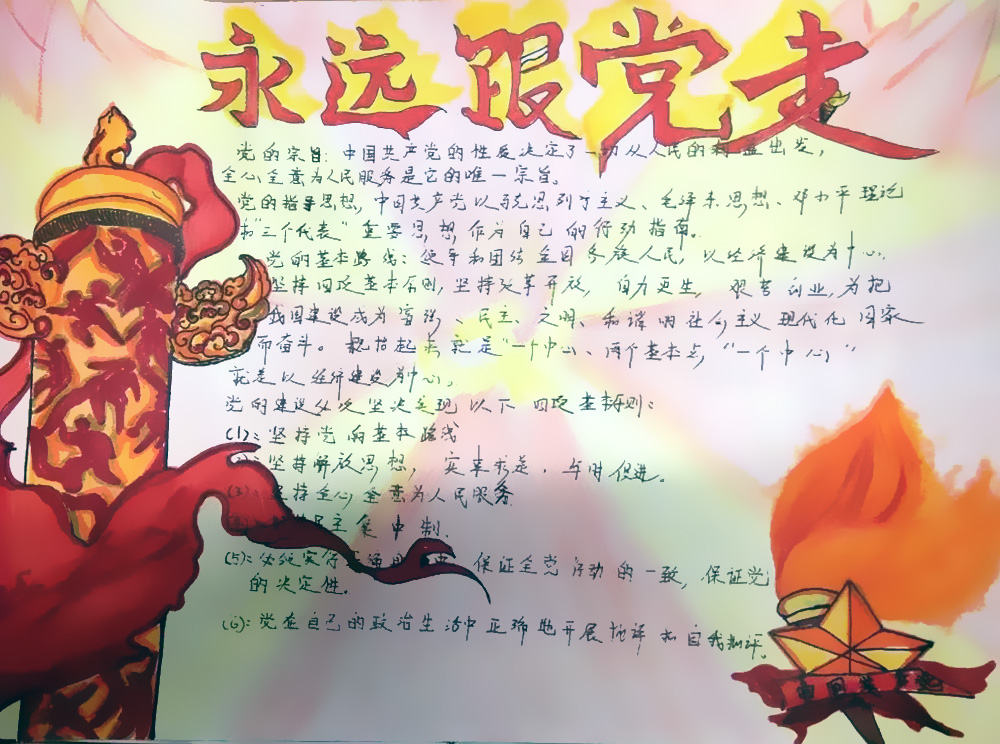 永远跟党走
党的宗旨：中国共产党的性质决定了一切从人民的利益出发，
全心全意为人民服务是它的唯一宗旨。
党的指导思想，中国共产党以马克思列宁主义、毛泽东思想、邓小平理论
和"三个代表"重要思想，作为自己的行动指南。
党的基本路线：领导和团结全国各族人民，以经济建设为中心，
坚持四项基本原则，坚持改革开放，自力更生，艰苦创业，为把
我国建设成为富强、民主、文明、和谐的社会主义现代化国家
而奋斗。概括起来就是"一个中心、两个基本点，"一个中心"
就是以经济建设为中心，
党的建设必须坚决实现以下四项基本原则：
(1)：坚持党的基本路线
坚持解放思想，实事求是，与时俱进。
(3)：坚持全心全意为人民服务
民主集中制.
(5)：必须实行 保证全党行动的一致，保证党
的决定性.
(6)：党在自己的政治生活中正确地开展批评和自我批评。